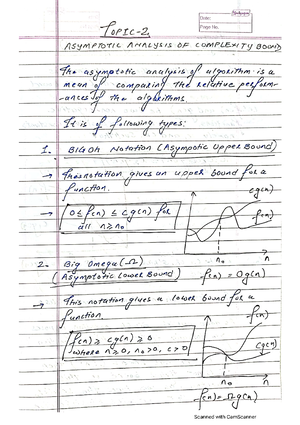 Date:
Page No.
TOPIC-2
ASYMPTOTIC ANALYSIS OF COMPLEXITY BOUND
The asymptotic analysis of algorithm is a
mean of comparing the relative perform-
ances of the algorithms.
It is of following types:
1. BIG Oh Notation (Asympotic Upper Bound)
→ This notation gives an upper bound for a
function.
→ 0 ≤ f(n) ≤ c g(n) for
all n ≥ n₀
cg(n)
f(n)
n₀
n
f(n) = Og(n)
2. Big Omega (Ω)
(Asymptotic Lower Bound)
→ This notation gives a lower bound for a
function.
f(n) ≥ cg(n) ≥ 0
where n ≥ 0, n₀ > 0, c > 0
f(n)
cg(n)
n₀
n
f(n) = Ωg(n)
Scanned with CamScanner